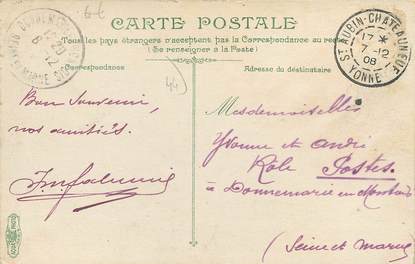 CARTE POSTALE
Tous les pays étrangers n'acceptent pas la Correspondance au recto
(Se renseigner à la Poste)
Correspondance
Adresse du destinataire
ST AUBIN-CHATEAUNEUF
17
7-12
08
YONNE
44
Bon Souvenir,
nos amitiés.
Mesdemoiselles
Yvonne et
Postes
à Donnemarie en Montois
(Seine et Marne